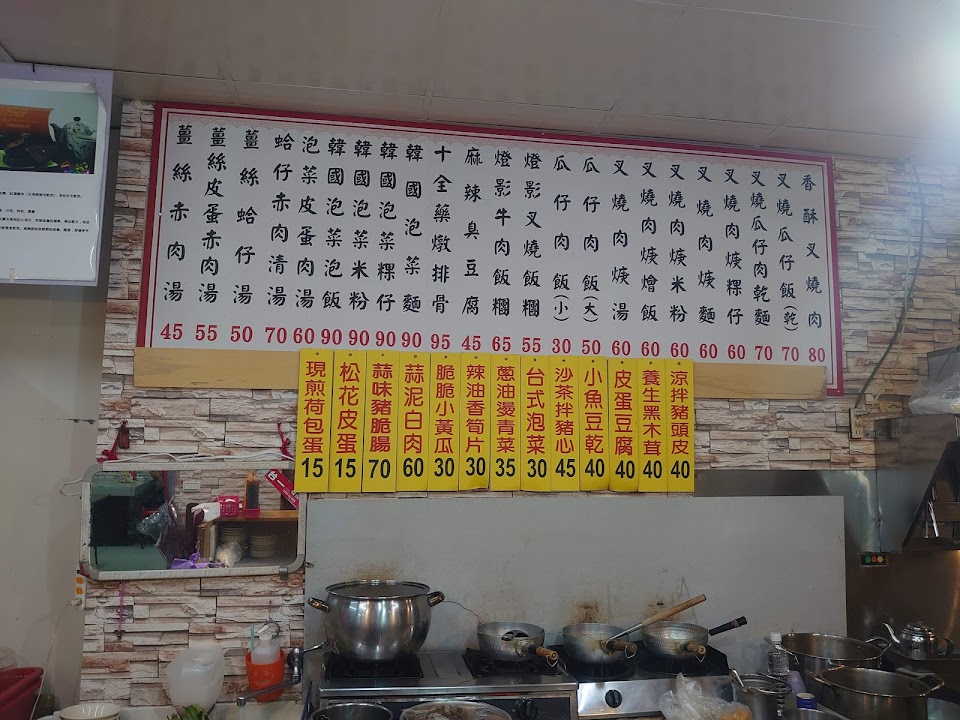 香酥叉燒肉 80
叉燒瓜仔飯(乾) 70
叉燒瓜仔肉乾麵 70
叉燒肉焿粿仔 60
叉燒肉焿麵 60
叉燒肉焿米粉 60
叉燒肉焿燴飯 60
叉燒肉焿湯 60
瓜仔肉飯(大) 50
瓜仔肉飯(小) 30
燈影叉燒飯糰 55
燈影牛肉飯糰 65
麻辣臭豆腐 45
十全藥燉排骨 95
韓國泡菜麵 90
韓國泡菜粿仔 90
韓國泡菜米粉 90
韓國泡菜泡飯 90
泡菜皮蛋肉湯 60
蛤仔赤肉清湯 70
薑絲蛤仔湯 50
薑絲皮蛋赤肉湯 55
薑絲赤肉湯 45
涼拌豬頭皮 40
養生黑木茸 40
皮蛋豆腐 40
小魚豆乾 40
沙茶拌豬心 45
台式泡菜 30
蔥油燙青菜 35
辣油香筍片 30
脆脆小黃瓜 30
蒜泥白肉 60
蒜味豬脆腸 70
松花皮蛋 15
現煎荷包蛋 15